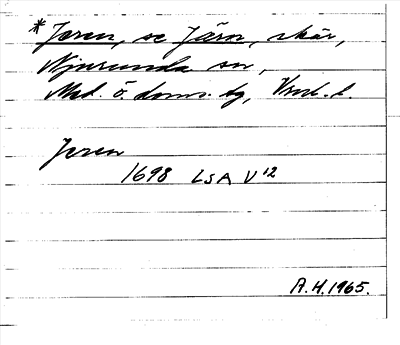 *Jeren, se Järn, skär,
Njurunda sn,
Med. ö. doms. tg, Vnrl. l.
Jeren
1698 LSA V¹²
A.H. 1965.